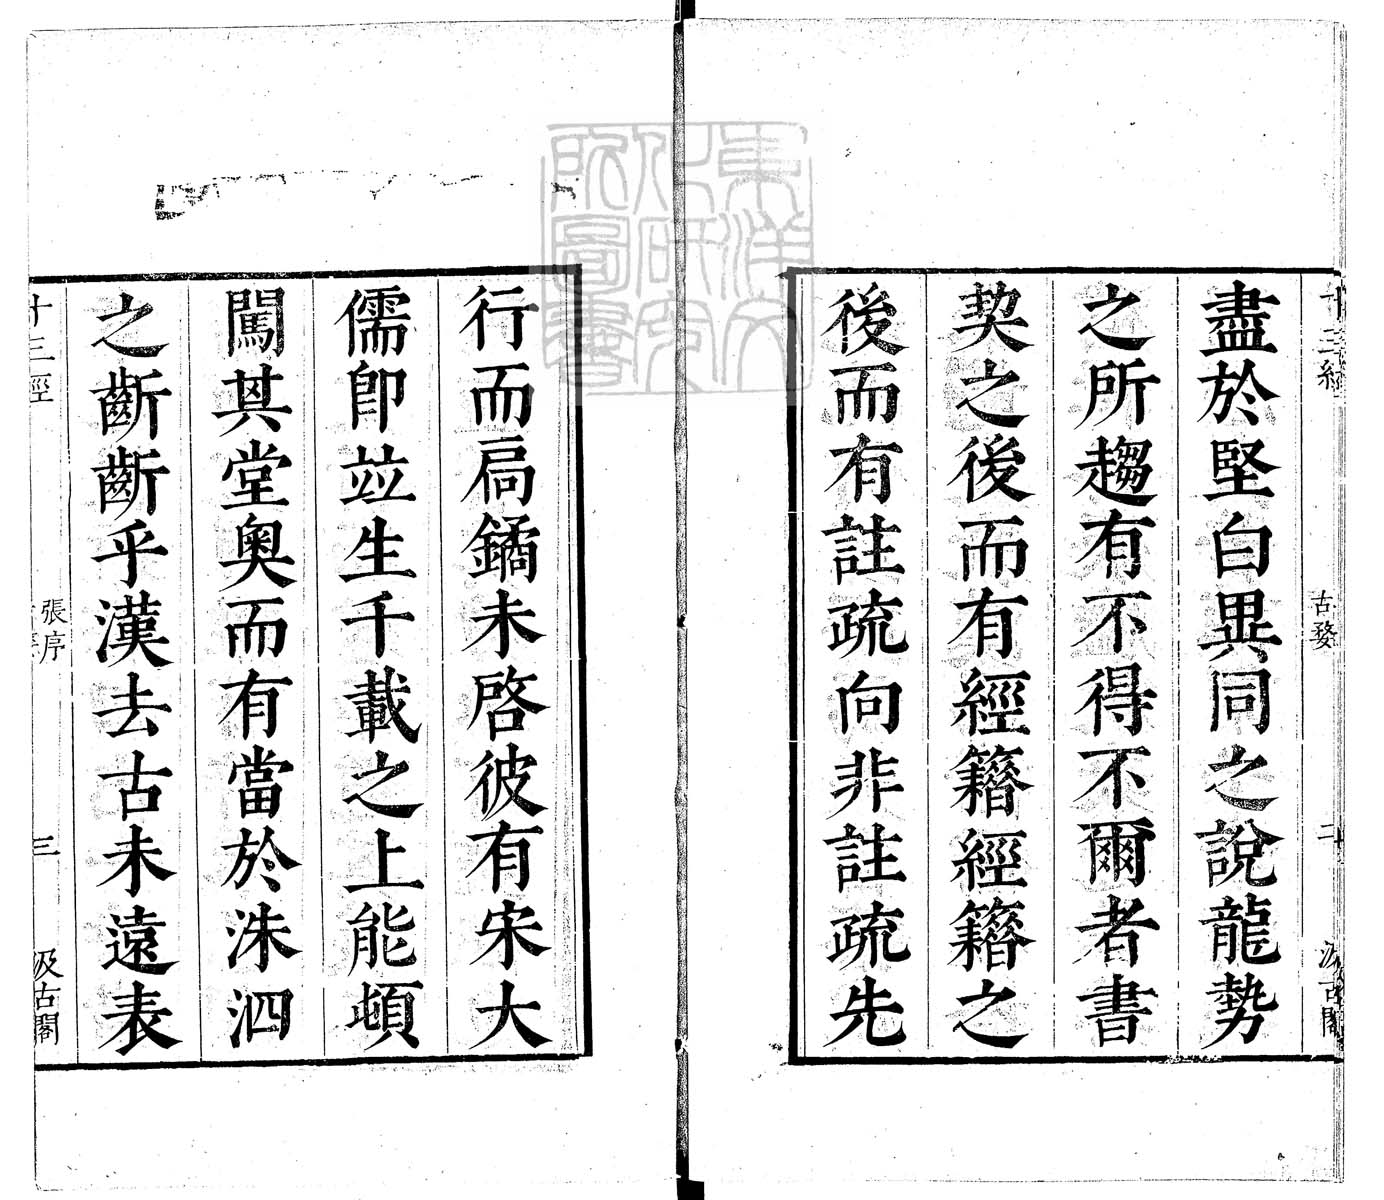 盡於堅白異同之說龍勢
之所趨有不得不爾者書
契之後而有經籍經籍之
後而有註疏向非註疏先
行而扃鐍未啓彼有宋大
儒卽竝生千載之上能頓
闖其堂奧而有當於洙泗
之齗齗乎漢去古未遠表
十三經
張序
三
汲古閣
東洋文
化研究
所圖書